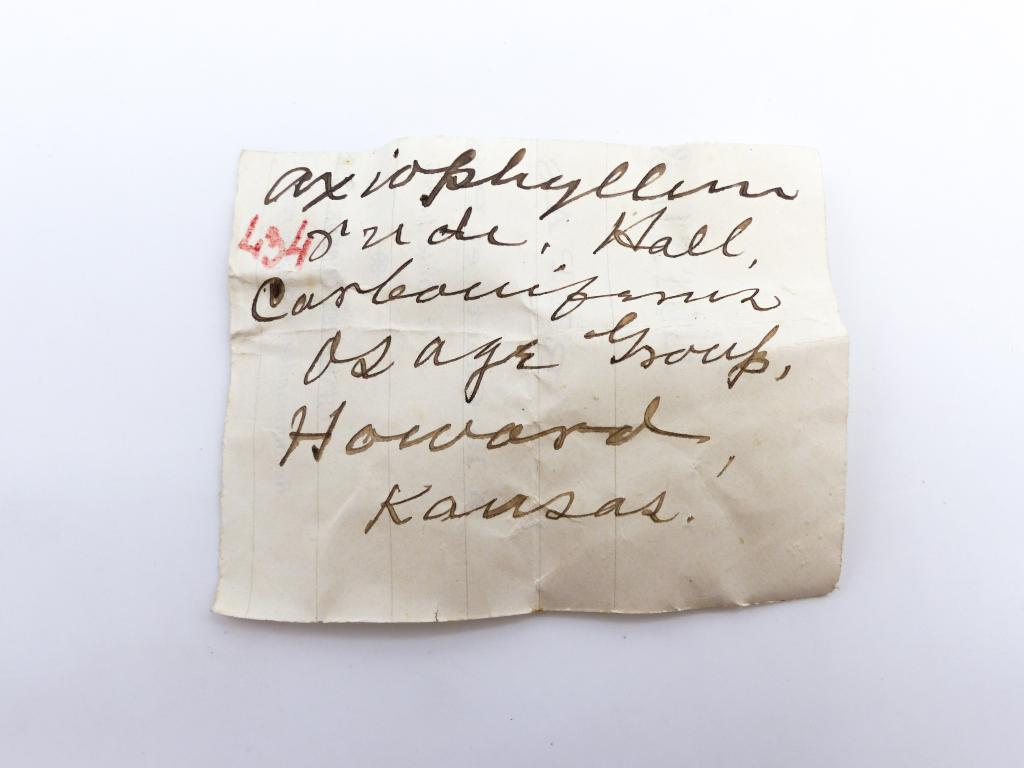 axiophyllum
434 rude. Hall,
Carboniferus
Osage Group,
Howard,
Kansas.